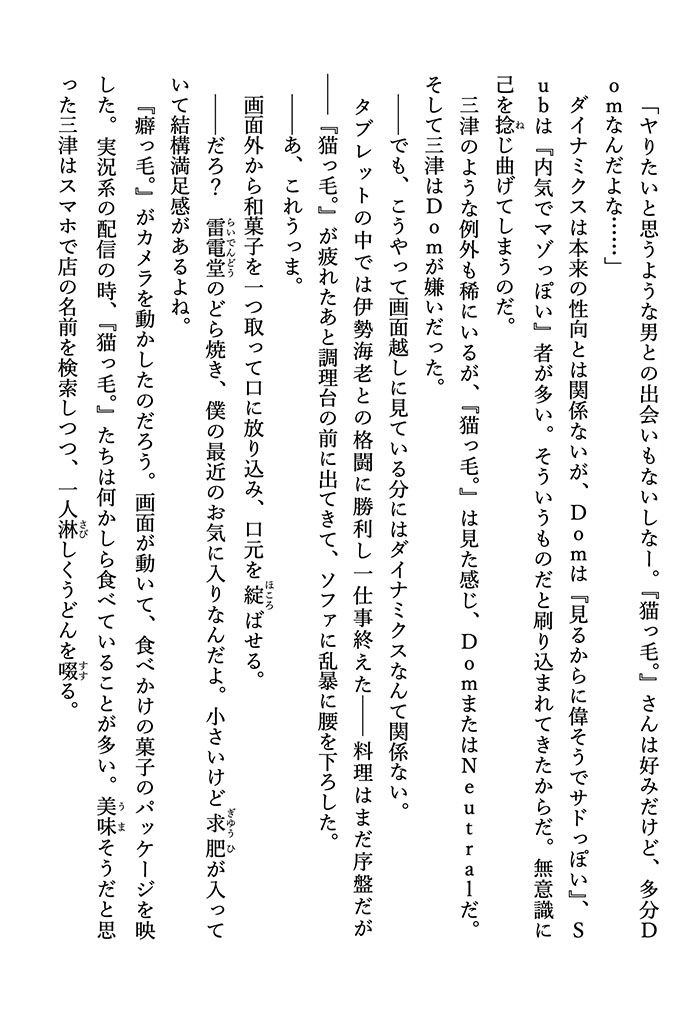 「ヤりたいと思うような男との出会いもないしなー。『猫っ毛。』さんは好みだけど、多分D
omなんだよな……」
ダイナミクスは本来の性向とは関係ないが、Domは『見るからに偉そうでサドっぽい』、S
ubは『内気でマゾっぽい』者が多い。そういうものだと刷り込まれてきたからだ。無意識に
己を捻ねじ曲げてしまうのだ。
三津のような例外も稀にいるが、『猫っ毛。』は見た感じ、DomまたはNeutralだ。
そして三津はDomが嫌いだった。
――でも、こうやって画面越しに見ている分にはダイナミクスなんて関係ない。
タブレットの中では伊勢海老との格闘に勝利し一仕事終えた――料理はまだ序盤だが
――『猫っ毛。』が疲れたあと調理台の前に出てきて、ソファに乱暴に腰を下ろした。
――あ、これうっま。
画面外から和菓子を一つ取って口に放り込み、口元を綻ほころばせる。
――だろ？　雷電堂らいでんどうのどら焼き、僕の最近のお気に入りなんだよ。小さいけど求肥ぎゆうひが入って
いて結構満足感があるよね。
『癖っ毛。』がカメラを動かしたのだろう。画面が動いて、食べかけの菓子のパッケージを映
した。実況系の配信の時、『猫っ毛。』たちは何かしら食べていることが多い。美味うまそうだと思
った三津はスマホで店の名前を検索しつつ、一人淋さびしくうどんを啜すする。